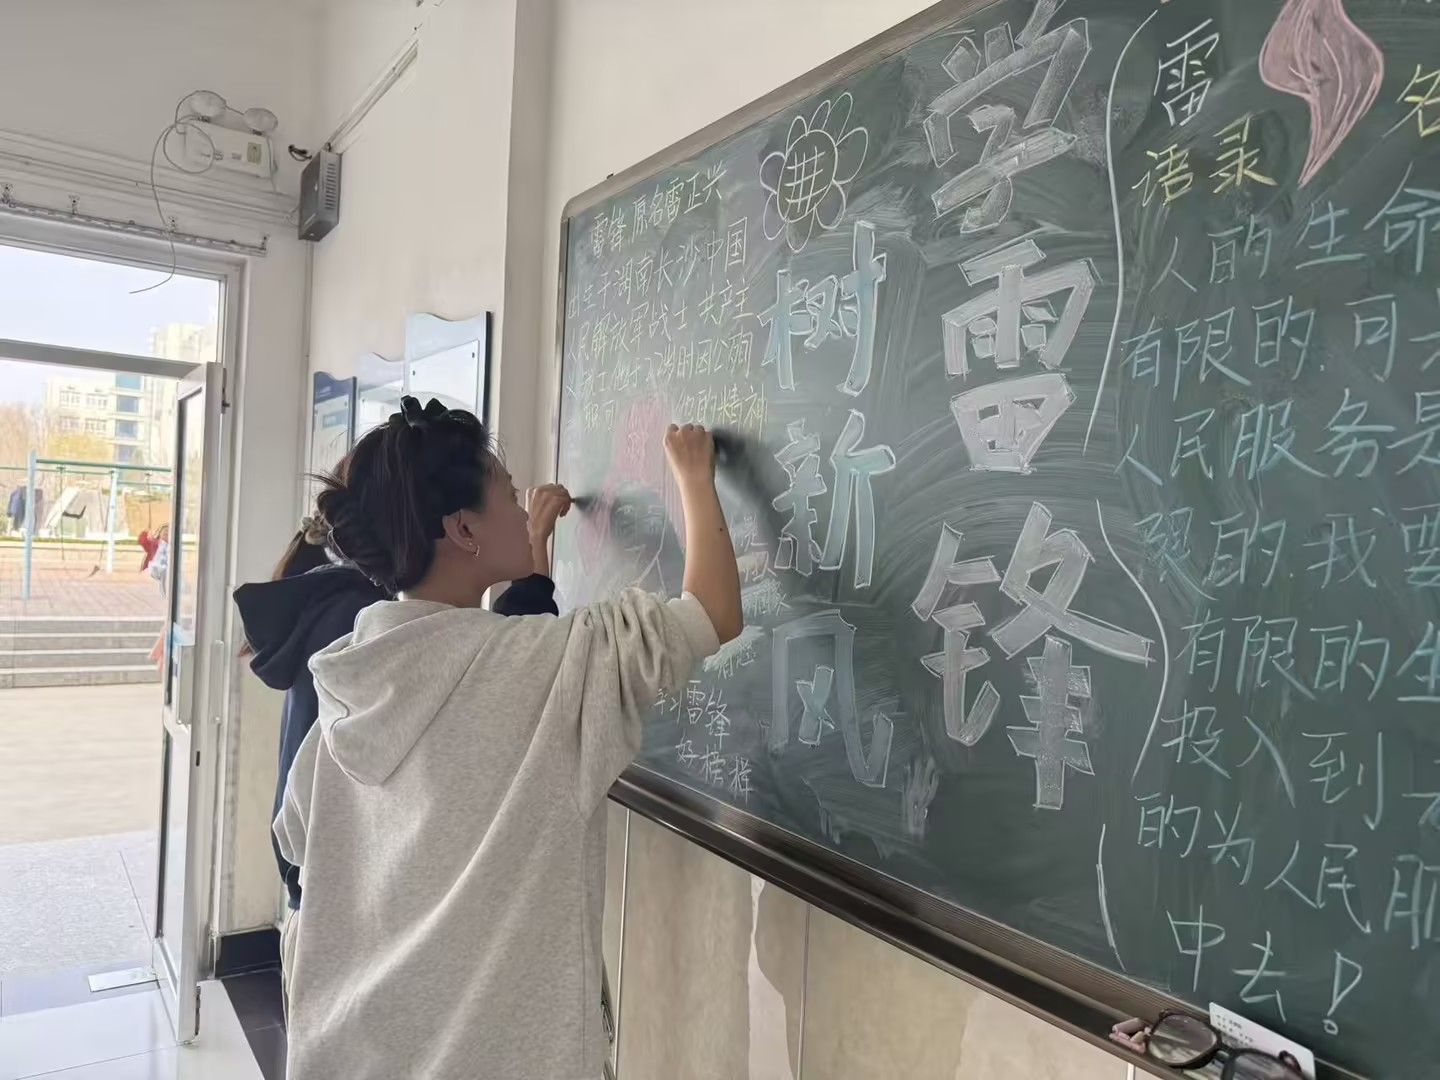 雷锋,原名雷正兴
出生于湖南长沙,中国
人民解放军战士 共产主
时因公殉
他的精神
学习雷锋
好榜样
树新风
学雷锋
雷 名
语录
人的生命
有限的,可
人民服务是
限的,我要
有限的生
投入到
的为人民服
中去!